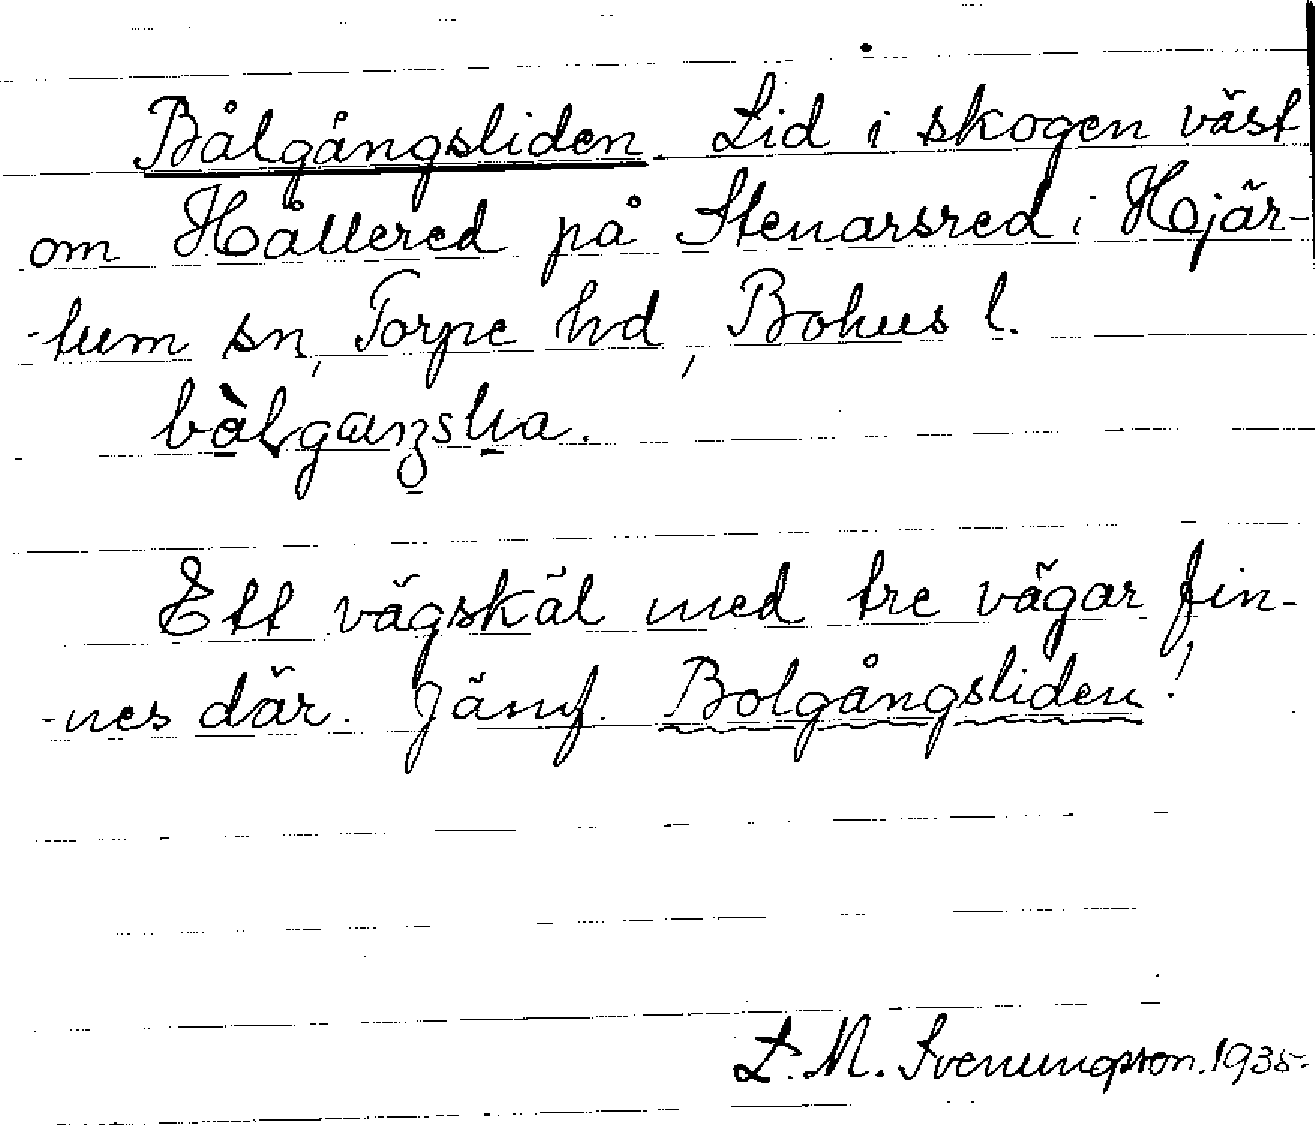 Bålgångsliden. Lid i skogen väst
om Hållered på Stenarsred i Hjär-
-tum sn, Torpe hd, Bohus l.
Ett vägskäl med tre vägar fin-
-nes där. Jämf. Bolgångsliden!
L. M. Svenungsson. 1935.